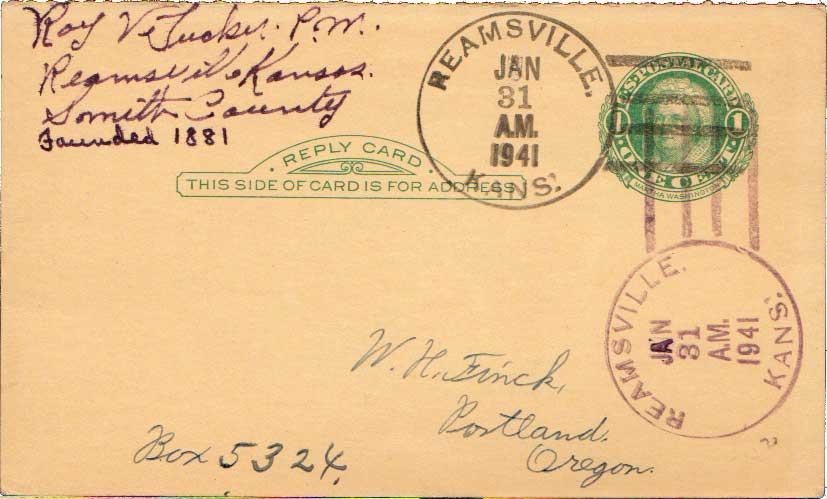 Roy V. Tucker. P.M.
Reamsville Kansas.
Somith County
Founded 1881
REPLY CARD
THIS SIDE OF CARD IS FOR ADDRESS
REAMSVILLE,
JAN
31
A.M.
1941
KANS.
U.S. POSTAL CARD
1 1
ONE CENT
MARTHA WASHINGTON
REAMSVILLE.
JAN
31
A.M.
1941
KANS.
W. H. Finck,
Portland.
Oregon.
Box 5324.